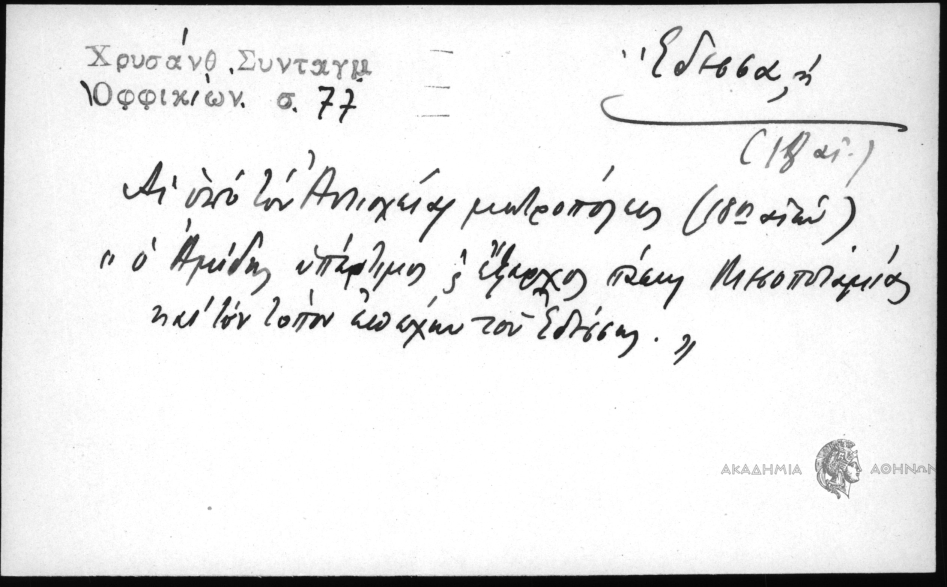 Χρυσάνθ. Συνταγμ
Ὀφφικίων. σ. 77
Ἔδεσσα, ἡ
(18 αἰ.)
Αἱ ὑπὸ τὸν Ἀντιοχείας μητροπόλεις (18ου αἰῶν)
" ὁ Ἀμίδης ὑπέρτιμος & ἔξαρχος πάσης Μεσοποταμίας
καὶ τὸν τόπον ἐπέχων τοῦ Ἐδέσσης. "
ΑΚΑΔΗΜΙΑ ΑΘΗΝΩΝ